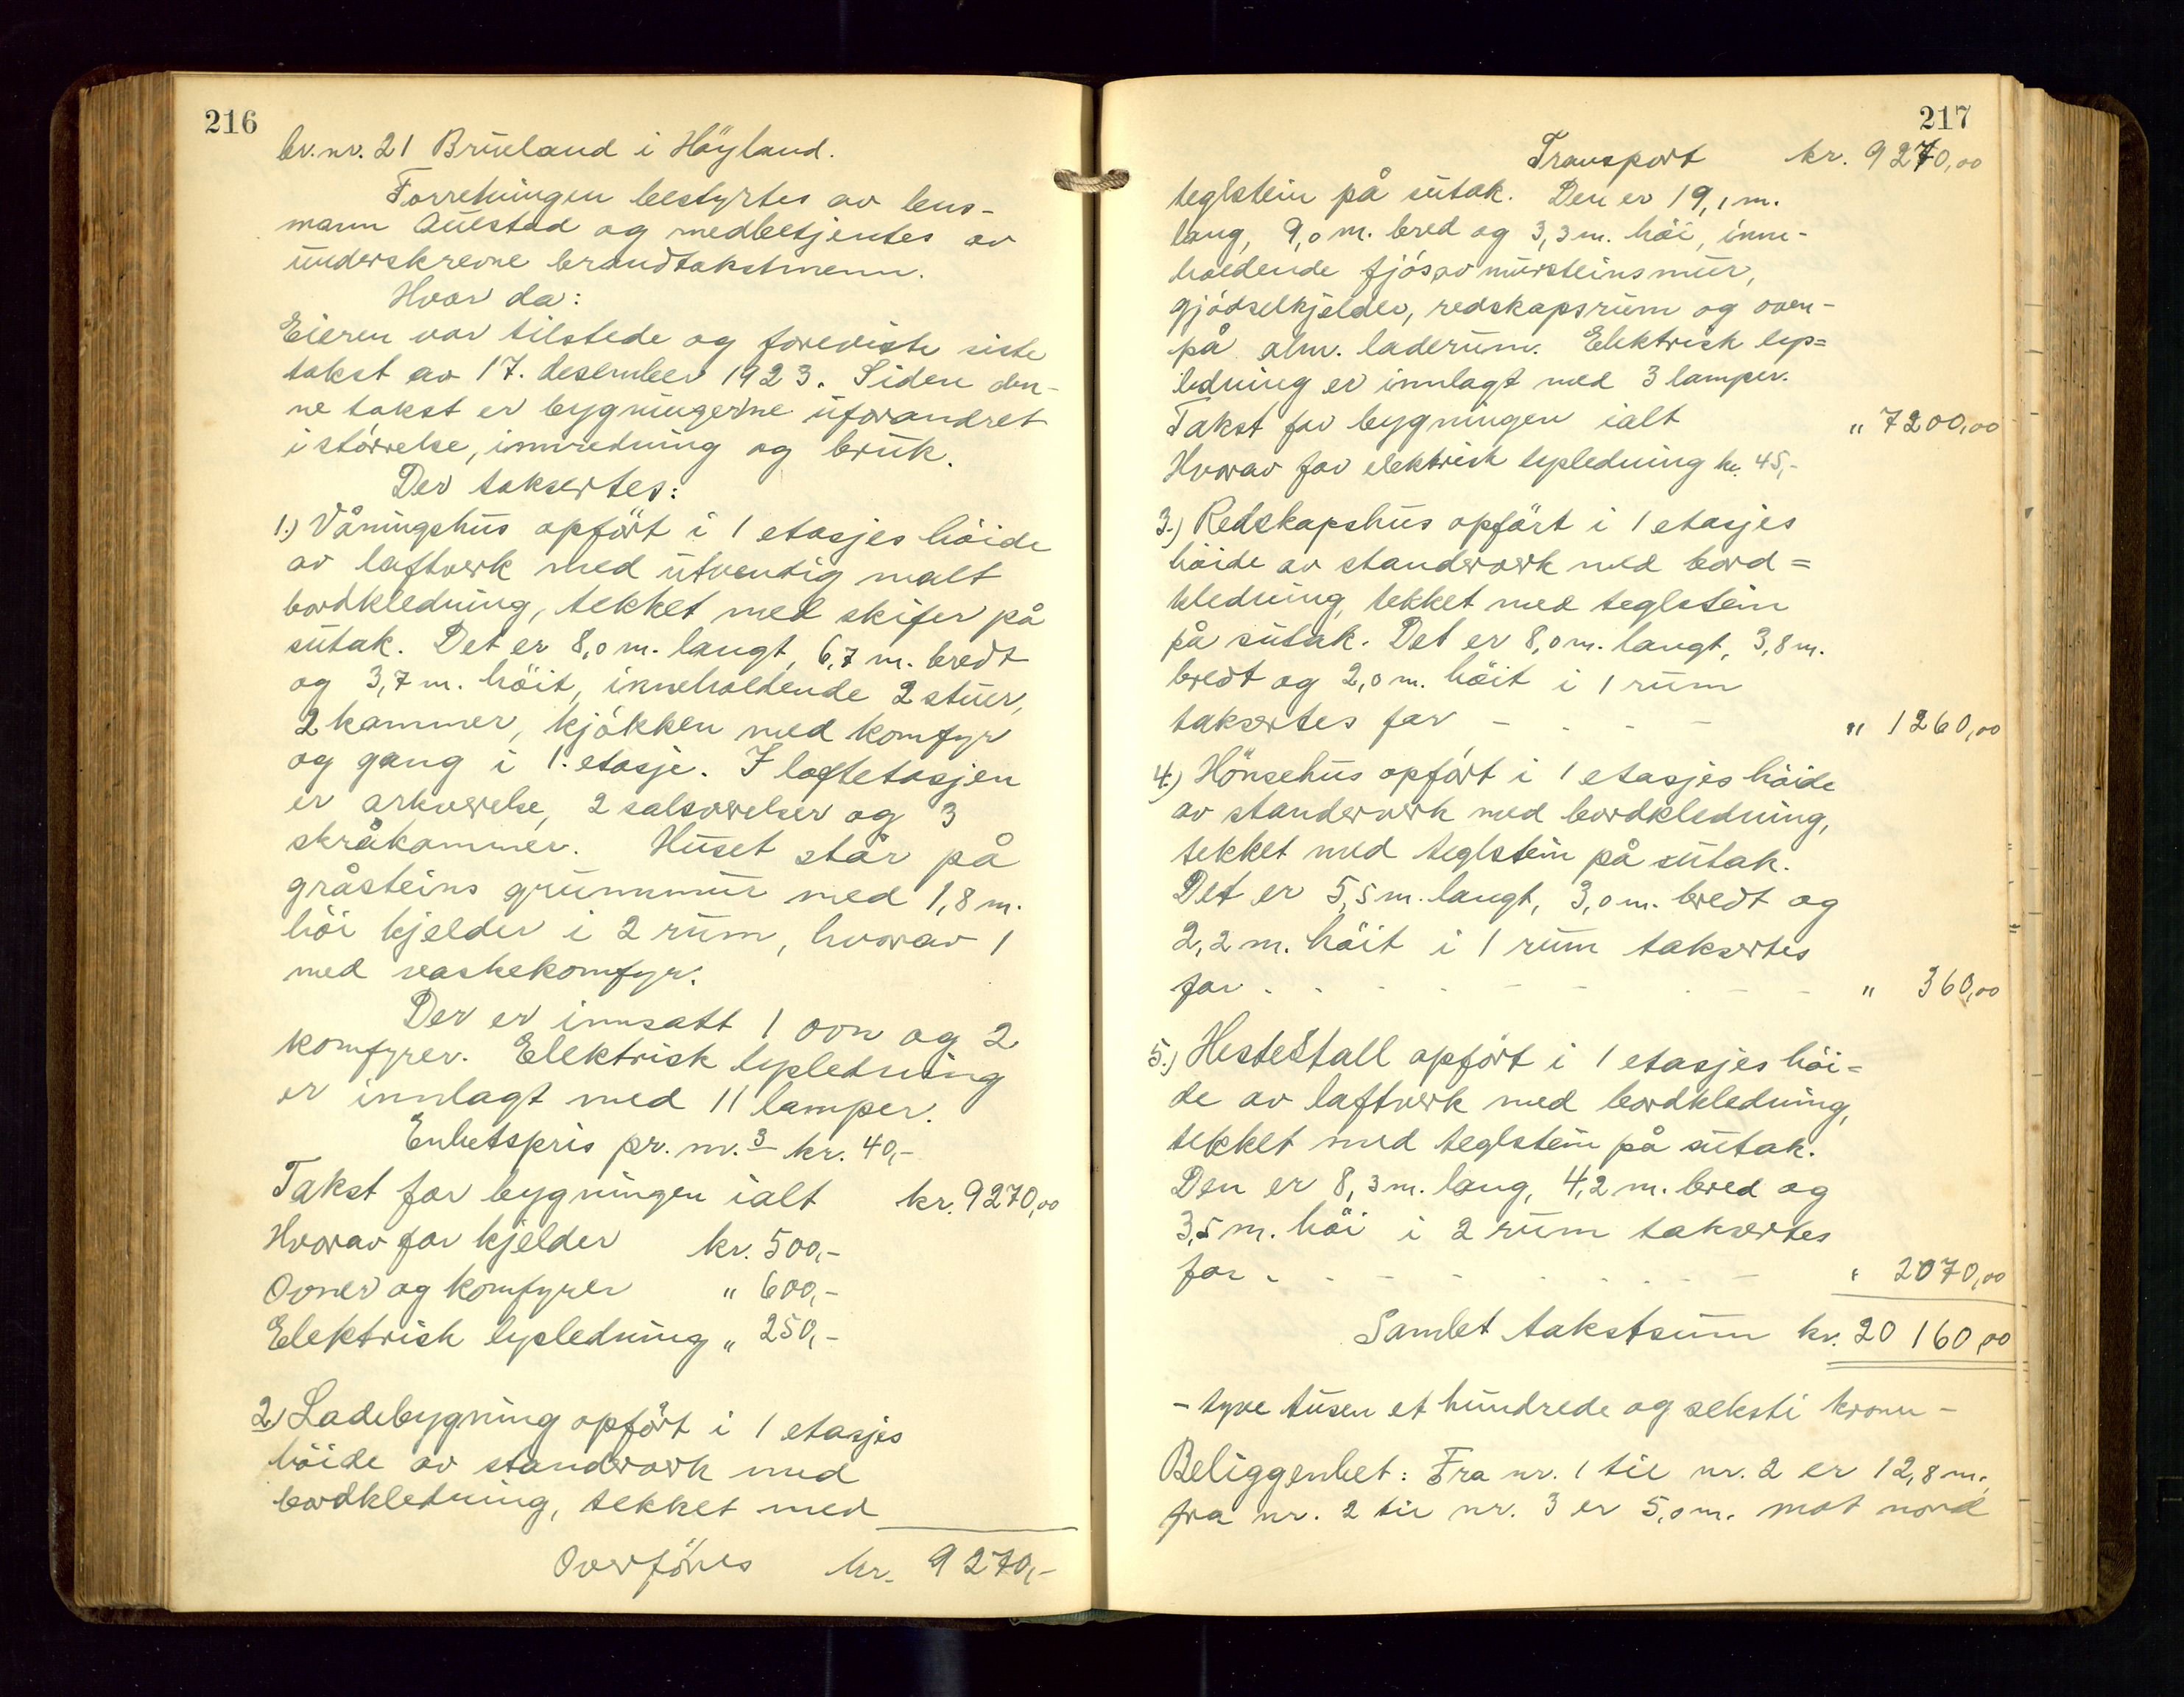 216
br.nr. 21 Brueland i Höyland.
Forretningen bestyrtes av lens-
mann Aulstad og medbetjentes av
underskrevne brandtakstmenn.
Hvor da:
Eieren var tilstede og foreviste siste
takst av 17. desember 1923. Siden den-
ne takst er bygningerne uforandret
i störrelse, innredning og bruk.
Der taksertes:
1.) Våningshus opfört i 1 etasjes höide
av laftverk med utvendig malt
bordkledning, tekket med skifer på
sutak. Det er 8,0 m. langt, 6,7 m. bredt
og 3,7 m. höit, inneholdende 2 stuer,
2 kammer, kjökken med komfyr
og gang i 1. etasje. I loftetasjen
er arkverelse, 2 salsverelser og 3
skråkammer. Huset står på
gråsteins grunnmur med 1,8 m.
höi kjelder i 2 rum, hvorav 1
med vaskekomfyr.
Der er innsatt 1 ovn og 2
komfyrer. Elektrisk lysledning
er innlagt med 11 lamper.
Enhetspris pr. m.3 kr. 40,-
Takst for bygningen ialt kr. 9270,00
Hvorav for kjelder kr. 500,-
Ovner og komfyrer " 600,-
Elektrisk lysledning " 250,-
2) Ladebygning opfört i 1 etasjes
höide av standverk med
bordkledning, tekket med
Overföres kr. 9270,-
217
Transport kr. 9270,00
teglstein på sutak. Den er 19,1 m.
lang, 9,0 m. bred og 3,3 m. höi, inne-
holdende fjös av mursteinsmur,
gjödselkjelder, redskapsrum og oven-
på alm. laderum. Elektrisk lys=
ledning er innlagt med 3 lamper.
Takst for bygningen ialt " 7200,00
Hvorav for elektrisk lysledning kr. 45,-
3.) Redskapshus opfört i 1 etasjes
höide av standerverk med bord=
kledning, tekket med teglstein
på sutak. Det er 8,0 m. langt, 3,8 m.
bredt og 2,0 m. höit i 1 rum
taksertes for - - - - " 1260,00
4.) Hönsehus opfört i 1 etasjes höide
av standerverk med bordkledning,
tekket med teglstein på sutak.
Det er 5,5 m. langt, 3,0 m. bredt og
2,2 m. höit i 1 rum taksertes
for - - - - - - " 360,00
5.) Hestestall opfört i 1 etasjes höi=
de av laftverk med bordkledning,
tekket med teglstein på sutak.
Den er 8,3 m. lang, 4,2 m. bred og
3,5 m. höi i 2 rum taksertes
for - - - - - - " 2070,00
Samlet takstsum kr. 20 160,00
- tyve tusen et hundrede og seksti kroner -
Beliggenhet: Fra nr. 1 til nr. 2 er 12,8 m.,
fra nr. 2 til nr. 3 er 5,0 m. mot nord